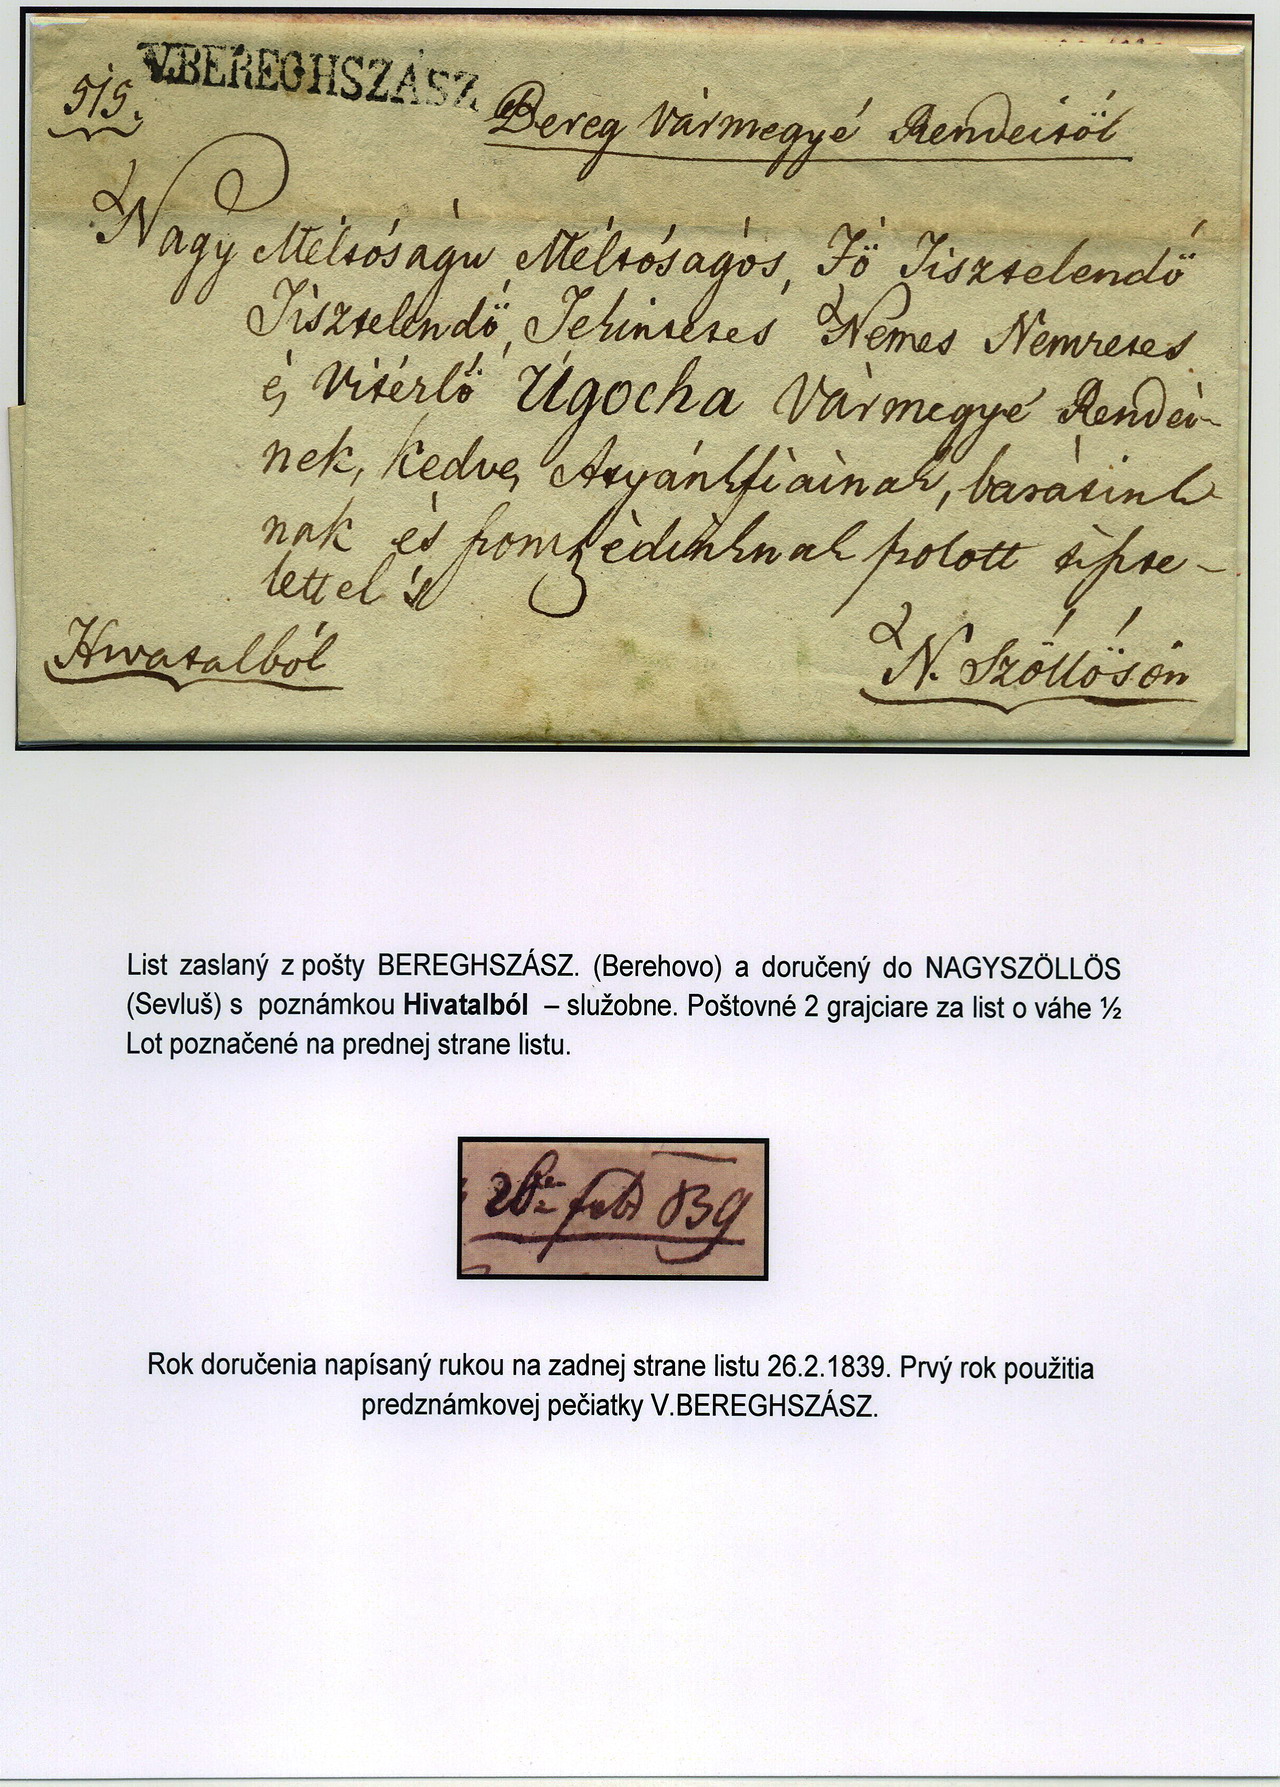 V.BEREGHSZÁSZ
515.
Bereg Vármegyé Rendeitől
Nagy Méltóságu, Méltóságos, Fő Tisztelendő
Tisztelendő, Tekintetes Nemes Nemzetes
és Vitézlő Úgocha Vármegyé Rendei-
nek, kedves Atyánkfiainak, barátink
nak és szomszédinknak szolott tiszte-
lettel
Hivatalból
N. Szöllősön
List zaslaný z pošty BEREGHSZÁSZ. (Berehovo) a doručený do NAGYSZÖLLÖS
(Sevluš) s poznámkou Hivatalból – služobne. Poštovné 2 grajciare za list o váhe ½
Lot poznačené na prednej strane listu.
839
Rok doručenia napísaný rukou na zadnej strane listu 26.2.1839. Prvý rok použitia
predznámkovej pečiatky V.BEREGHSZÁSZ.